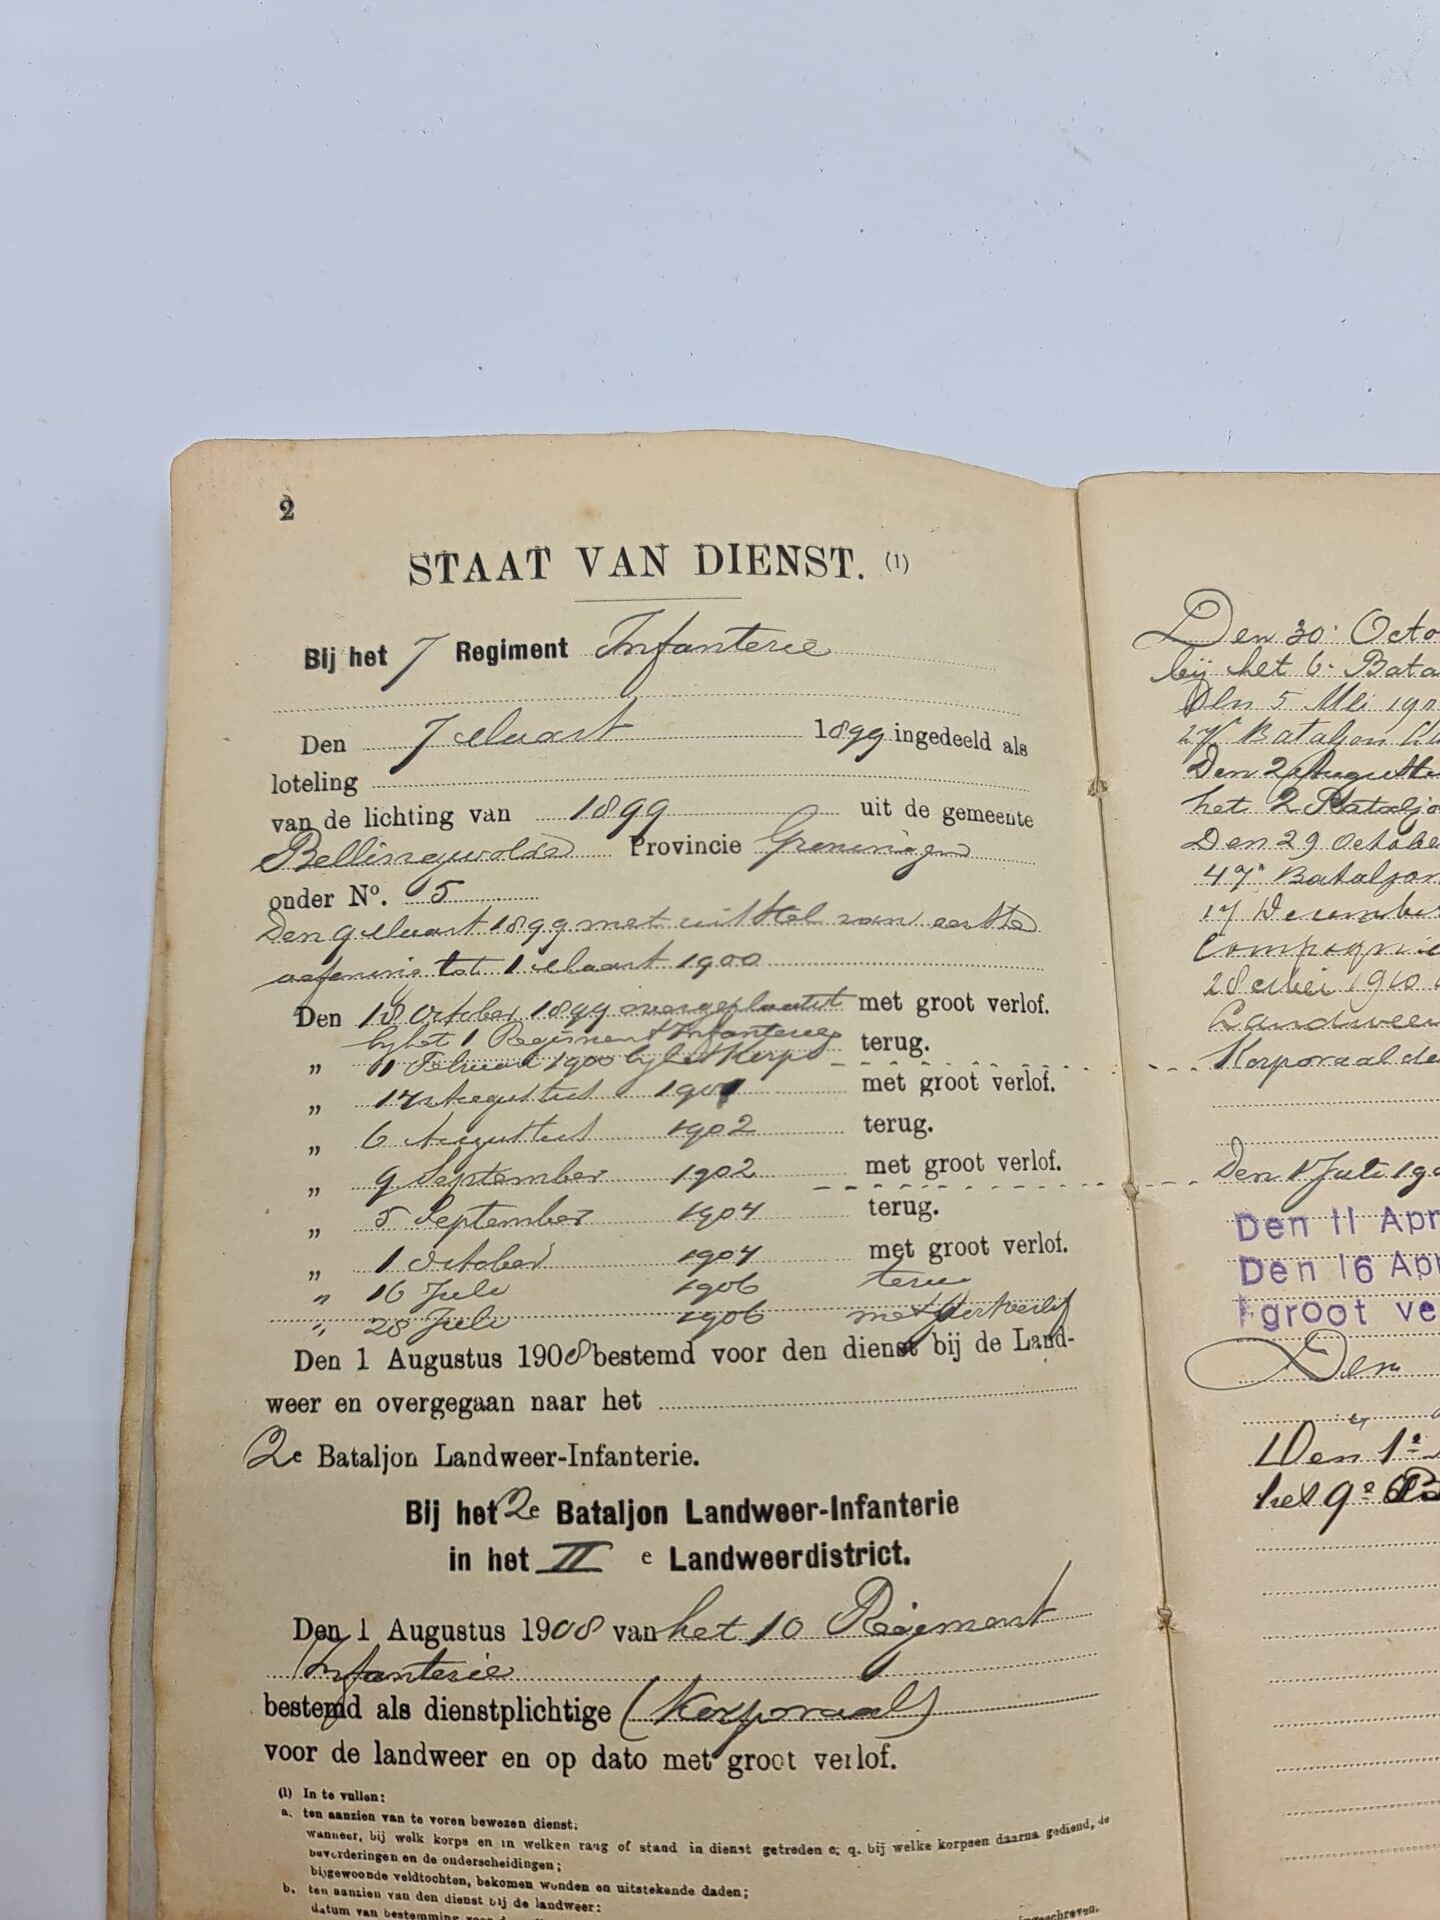 2
STAAT VAN DIENST. (1)
Bij het 7 Regiment Infanterie
Den 7 Maart 1899 ingedeeld als
loteling
van de lichting van 1899 uit de gemeente
Bellingwolde Provincie Groningen
onder No. 5
Den 9 Maart 1899 met uitstel van eerste
oefening tot 1 Maart 1900
Den 18 October 1899 overgeplaatst met groot verlof.
bij het 1 Regiment Infanterie
„ 1 Februari 1900 bij het Korps terug.
„ 17 Augustus 1901 met groot verlof.
„ 6 Augustus 1902 terug.
„ 9 September 1902 met groot verlof.
„ 5 September 1904 terug.
„ 1 October 1904 met groot verlof.
„ 16 Juli 1906 terug
„ 28 Juli 1906 met
Den 1 Augustus 1908 bestemd voor den dienst bij de Land-
weer en overgegaan naar het
2e Bataljon Landweer-Infanterie.
Bij het 2e Bataljon Landweer-Infanterie
in het II e Landweerdistrict.
Den 1 Augustus 1908 van het 10 Regiment
Infanterie
bestemd als dienstplichtige (Korporaal)
voor de landweer en op dato met groot verlof.
(1) In te vullen:
a. ten aanzien van te voren bewezen dienst;
wanneer, bij welk korps en in welken rang of stand in dienst getreden c. q. bij welke korpsen daarna gediend, de
bevorderingen en de onderscheidingen;
bijgewoonde veldtochten, bekomen wonden en uitstekende daden;
b. ten aanzien van den dienst bij de landweer:
datum van bestemming
Den 30 Octo
bij het 6e Bata
Den 5 Mei 190
27 Bataljon
Den 2 Augustus
het 2 Bataljo
Den 29 October
47e Bataljon
17 December
Compagnie
28 Mei 1910
Landweer
Korporaal de
Den 1 Juli 19
Den 11 Apr
Den 16 Apr
groot ve
Den
Den 1e
het 9e Ba